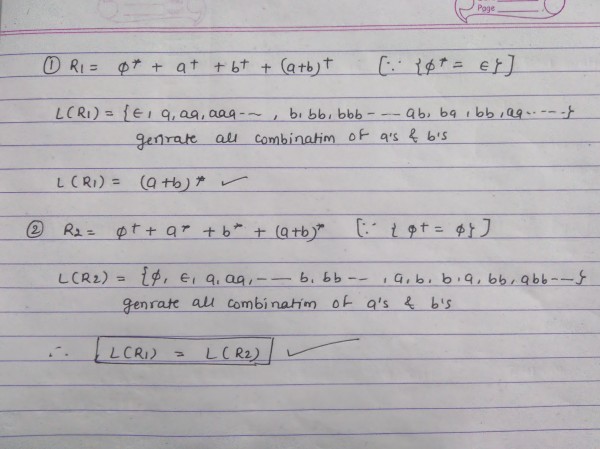 Page
① R1 = φ* + a⁺ + b⁺ + (a+b)⁺ [∵ {φ* = ε}]
L(R1) = {ε, a, aa, aaa--- , b, bb, bbb--- ab, ba, bb, aa-----}
genrate all combinatim of a's & b's
L(R1) = (a+b)* ✓
② R2 = φ⁺ + a* + b* + (a+b)* [∵ {φ⁺ = φ}]
L(R2) = {φ, ε, a, aa, --- b, bb -- , a, b, b, a, bb, abb---}
genrate all combinatim of a's & b's
∴ L(R1) = L(R2) ✓